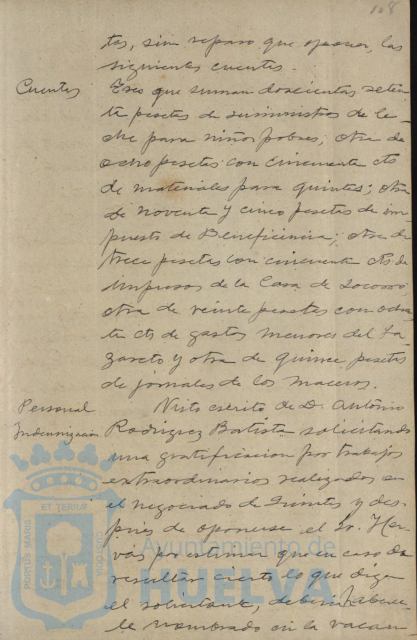 108
tos, sin reparo que oponer, las
siguientes cuentas.
Cuentas
Tres que suman doscientas seten
ta pesetas de suministros de le-
che para niños pobres; otra de
ocho pesetas con cincuenta cts
de materiales para quintas; otra
de noventa y cinco pesetas de im
puesto de Beneficencia; otra de
trece pesetas con cincuenta cts de
impresos de la Casa de Socorro
otra de veinte pesetas con ochen
ta cts de gastos menores del La-
zareto y otra de quince pesetas
de jornales de los maceros.
Personal
Indemnización
Visto escrito de D. Antonio
Rodriguez Bautista solicitando
una gratificacion por trabajos
extraordinarios realizados en
el negociado de Quintas y des-
pues de oponerse el Sr. Her-
vás, por estimar que en caso de
resultar cierto lo que dice
el solicitante, debería haberse
le nombrado en la vacan
PORTUS MARIS
ET TERRAE
CUSTODIA
Ayuntamiento de
HUELVA